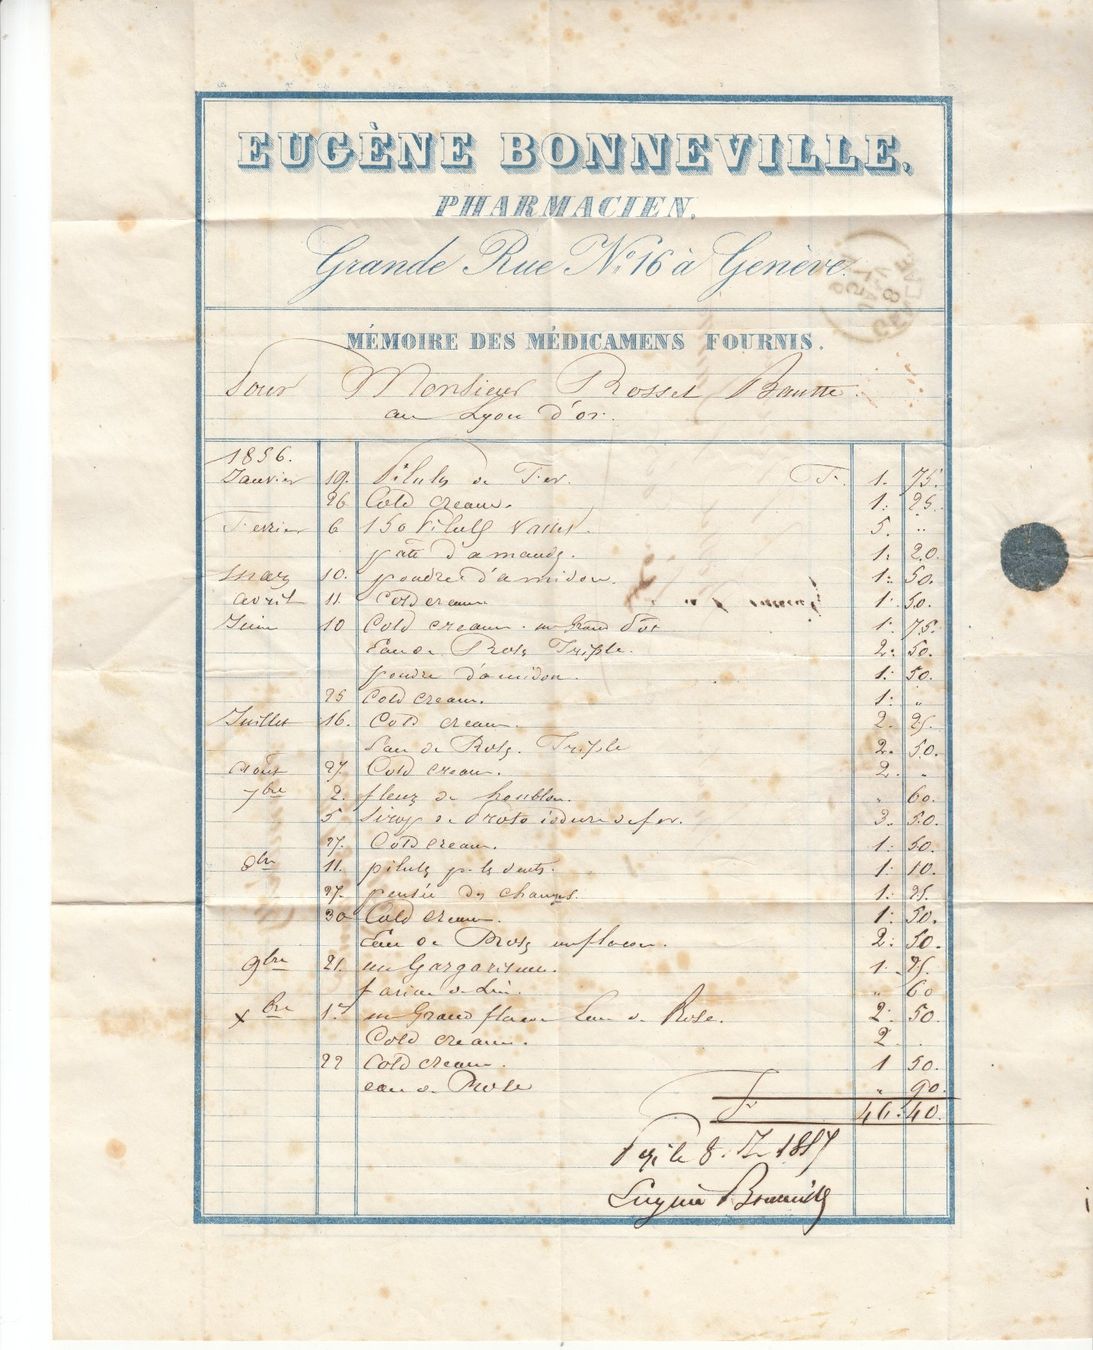 EUGÈNE BONNEVILLE,
PHARMACIEN.
Grande Rue N.º 16 à Genève.
MÉMOIRE DES MÉDICAMENS FOURNIS.
Pour Monsieur Rosset Bautte
au Lyon d'or.
1856.
Janvier 19. Pilules de Fer. F. 1. 75.
26 Cold cream. 1: 25.
Fevrier 6 150 Pilules Vallet. 5. "
pâte d'amandes. 1: 20.
mars 10. poudre d'amidon. 1: 50.
avril 11. Cold cream 1: 50.
Juin 10 Cold cream. un Grand Pot 1: 75.
Eau de Roses Triple. 2: 50.
poudre d'amidon. 1: 50.
25 Cold cream. 1: "
Juillet 16. Cold cream. 2. 25.
Eau de Roses. Triple 2. 50.
Août 27. Cold cream. 2. "
7bre 2. fleurs de houblon. " 60.
5. Sirop de Proto iodure de fer. 3. 50.
27. Cold cream. 1: 50.
8bre 11. pilules p. les dents. 1: 10.
27. pensée des champs. 1: 25.
30 Cold cream. 1: 50.
Eau de Roses un flacon. 2: 50.
9bre 21. un Gargarisme. 1. 25.
farine de Lin. " 60
Xbre 1er un Grand flacon Eau de Rose. 2. 50.
Cold cream. 2 .
22 Cold cream. 1 50.
eau de Rose " 90.
Fr 46. 40.
8. Jr 1857
Eugène Bonneville